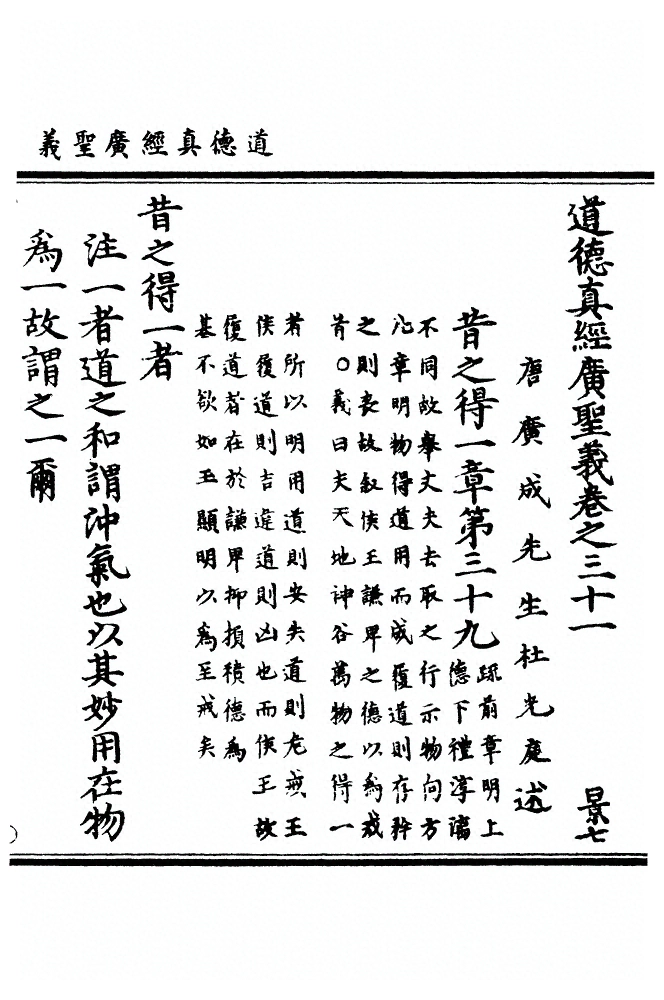 道德真經廣聖義
道德真經廣聖義卷之三十一 景七
唐廣成先生杜光庭述
昔之得一章第三十九 疏前章明上
德下禮淳漓
不同故舉丈夫去取之行示物向方
此章明物得道用而成履道則存
之則喪故叙侯王謙卑之德以為戒
首○義曰夫天地神谷萬物之得一
者所以明用道則安失道則危戒王
侯履道則吉違道則凶也而侯王故
復道者在於謙卑抑損積德為
基不欲如玉顯明以為至戒矣
昔之得一者
注一者道之和謂沖氣也以其妙用在物
為一故謂之一爾